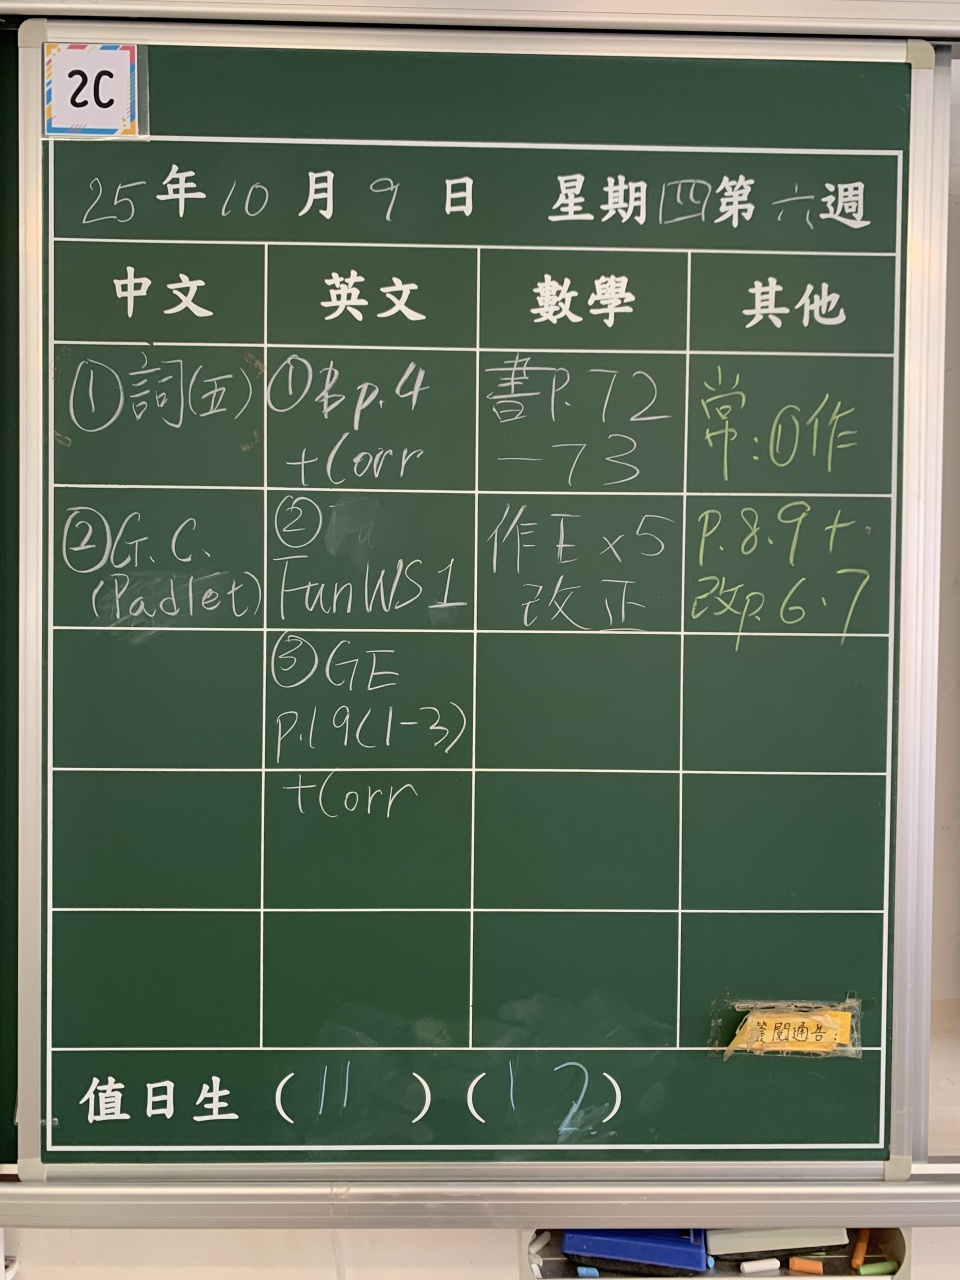 2C
25年10月9日 星期四第六週
中文 英文 數學 其他
①詞(五)
②G.C.
(Padlet)
①B p.4
+Corr
②
Fun WS 1
③GE
p.19(1-3)
+Corr
書P.72
-73
作E x5
改正
常:①作
P.8.9+
改p.6.7
簽閱通告:
值日生 (11) (12)